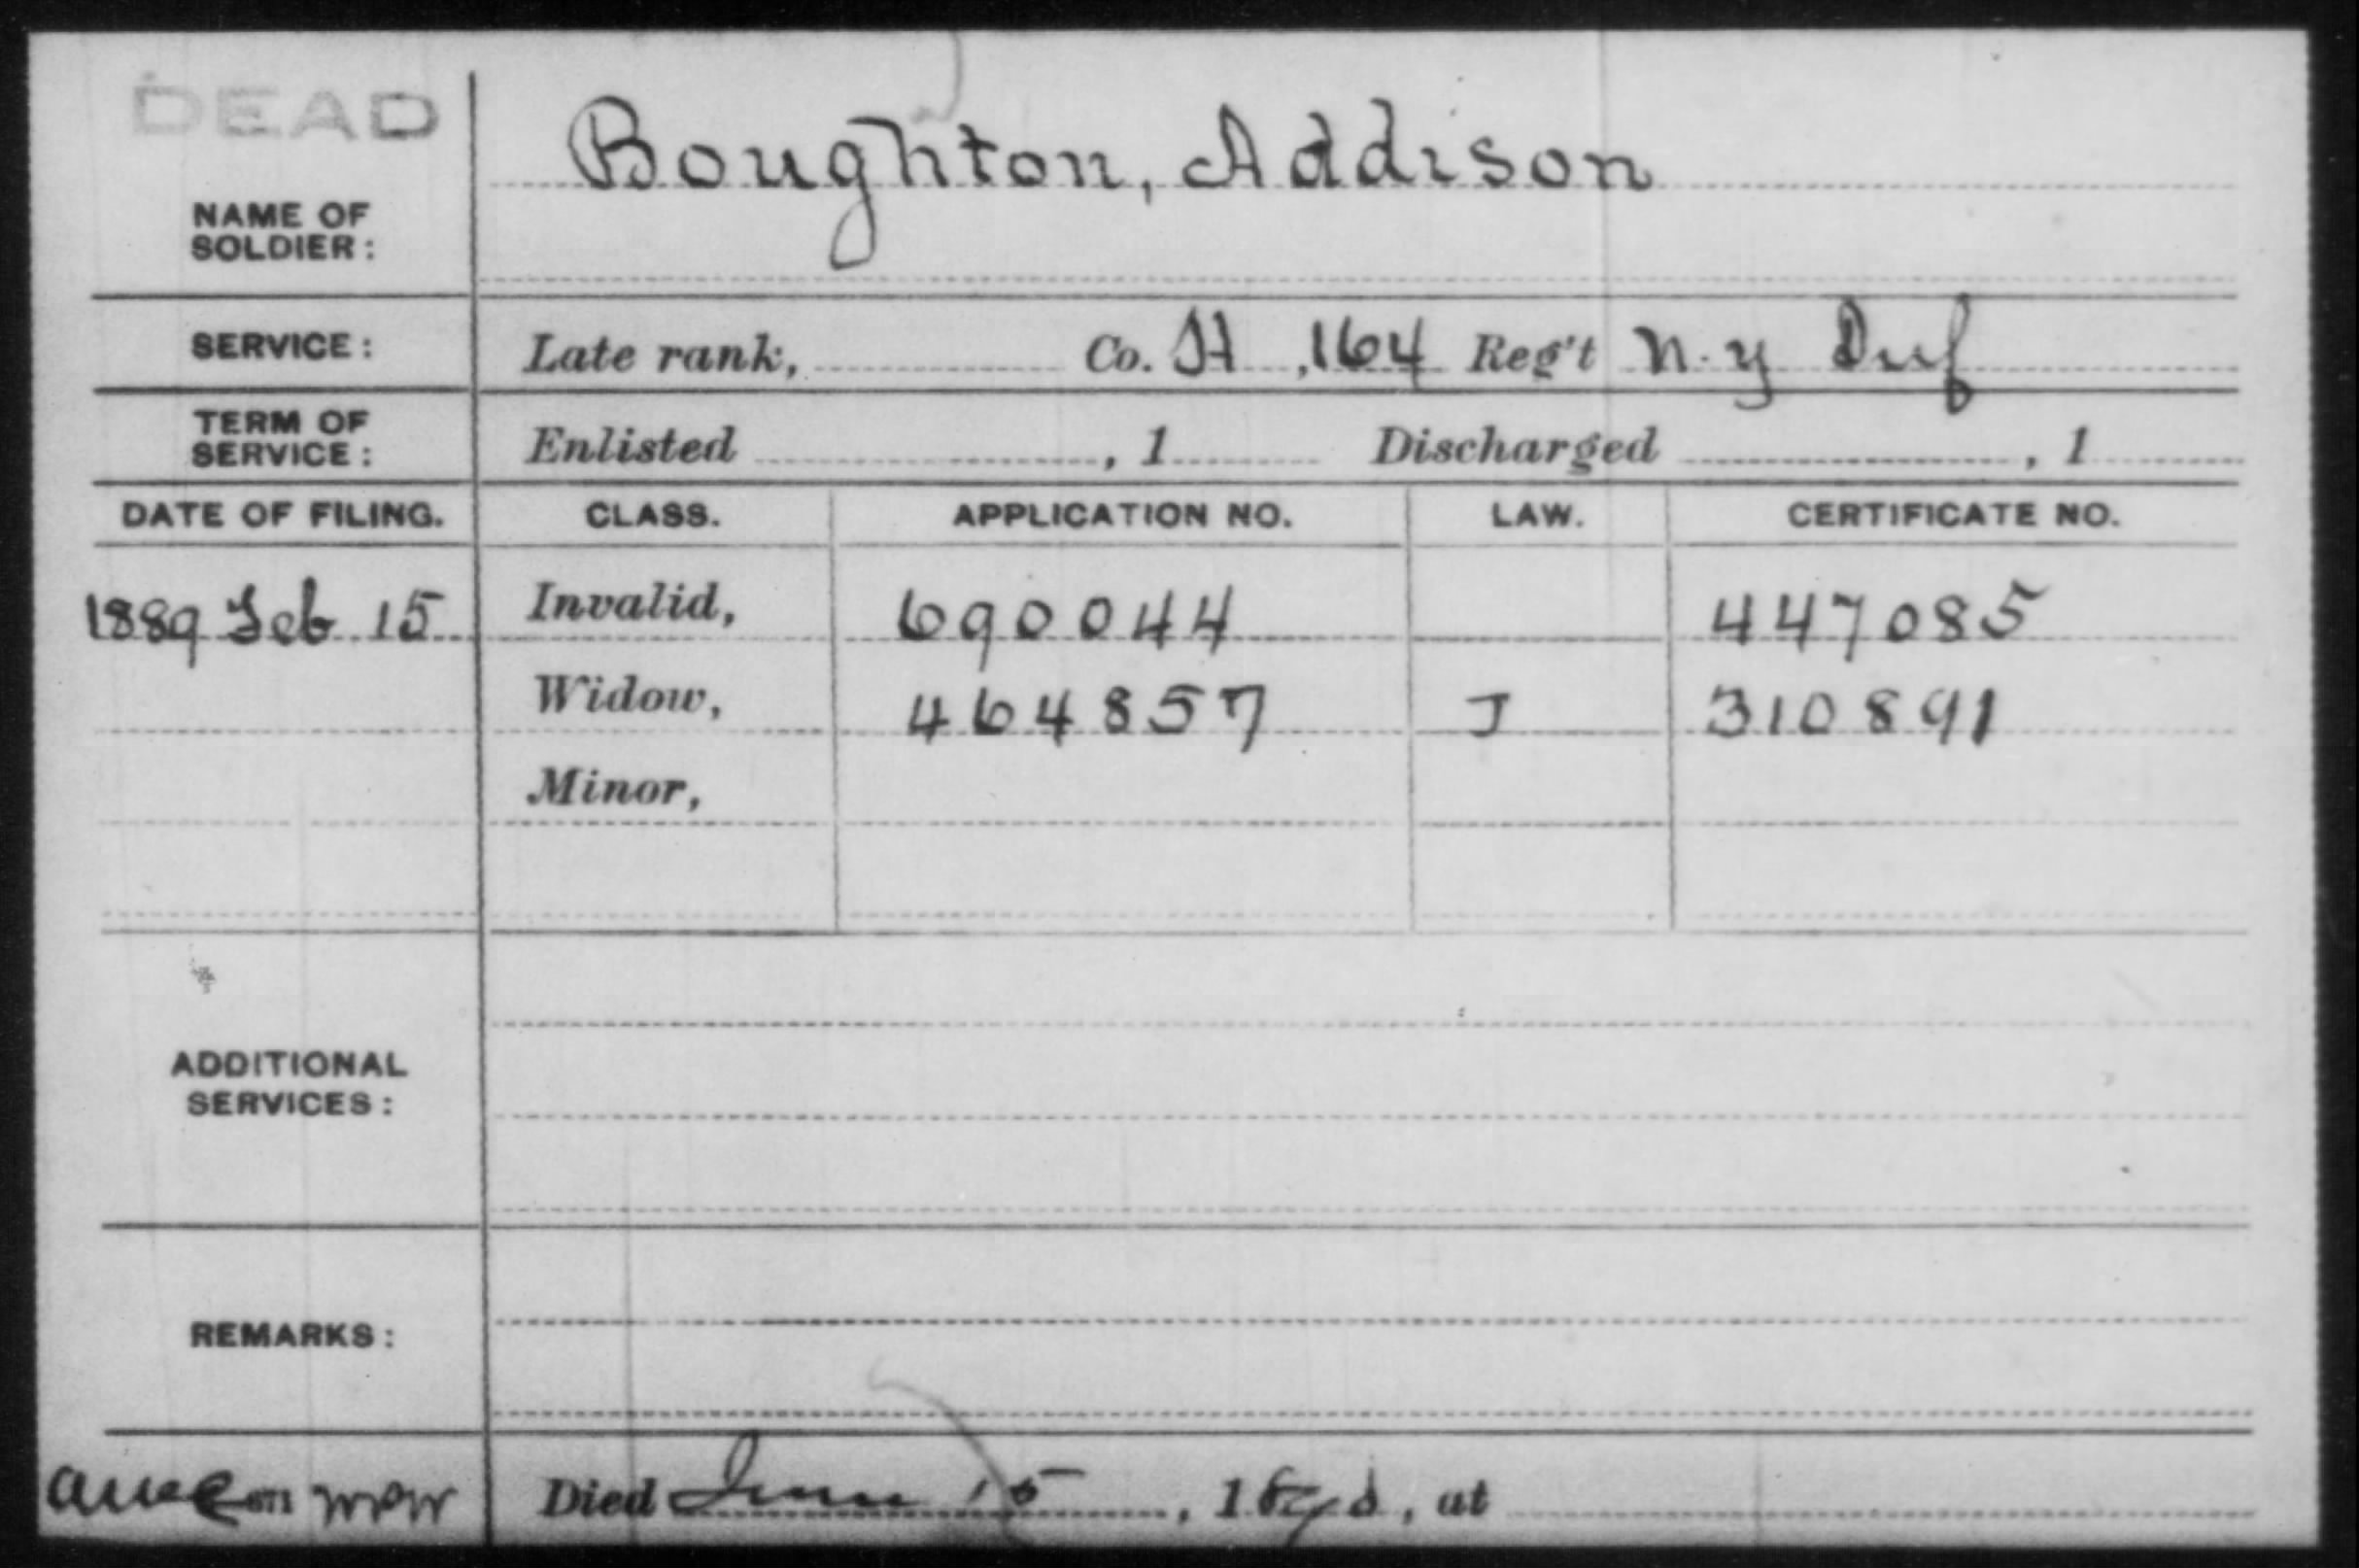 DEAD
Boughton, Addison
NAME OF
SOLDIER:
SERVICE: Late rank, Co. H, 164 Reg't N. Y Inf
TERM OF
SERVICE: Enlisted , 1 Discharged , 1
DATE OF FILING. CLASS. APPLICATION NO. LAW. CERTIFICATE NO.
1889 Feb 15 Invalid, 690044 447085
Widow, 464857 J 310891
Minor,
ADDITIONAL
SERVICES:
REMARKS:
Died June 15, 1 , at